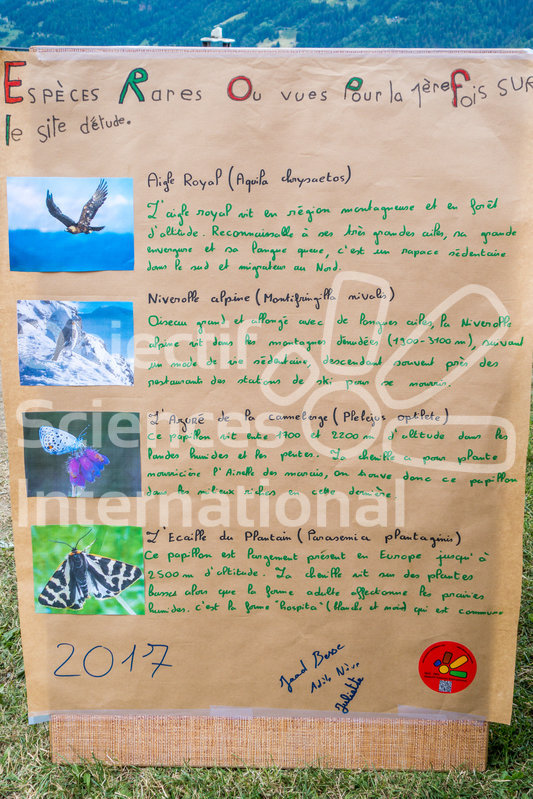 Espèces Rares Ou vues Pour la 1ère Fois SUR
le site d'étude.
Aigle Royal (Aquila chrysaetos)
L'aigle royal vit en région montagneuse et en forêt
d'altitude. Reconnaissable à ses très grandes ailes, sa grande
envergure et sa longue queue, c'est un rapace sédentaire
dans le sud et migrateur au Nord.
Niverolle alpine (Montifringilla nivalis)
Oiseau grand et allongé avec de longues ailes, la Niverolle
alpine vit dans les montagnes dénudées (1900-3100m), suivant
un mode de vie sédentaire, descendant souvent près des
restaurant des stations de ski pour se nourrir.
L'Azuré de la canneberge (Plebejus optilete)
Ce papillon vit entre 1700 et 2200m d'altitude dans les
landes humides et les pentes. La chenille a pour plante
nourricière l'Airelle des marais, on trouve donc ce papillon
dans les milieux riches en cette dernière.
L'Ecaille du Plantain (Parasemia plantaginis)
Ce papillon est largement présent en Europe jusqu'à
2500m d'altitude. La chenille vit sur des plantes
basses alors que la forme adulte affectionne les prairies
humides. c'est la forme "hospita" (blanche et noire) qui est commune
2017
Juliette
Objectif
Sciences
International